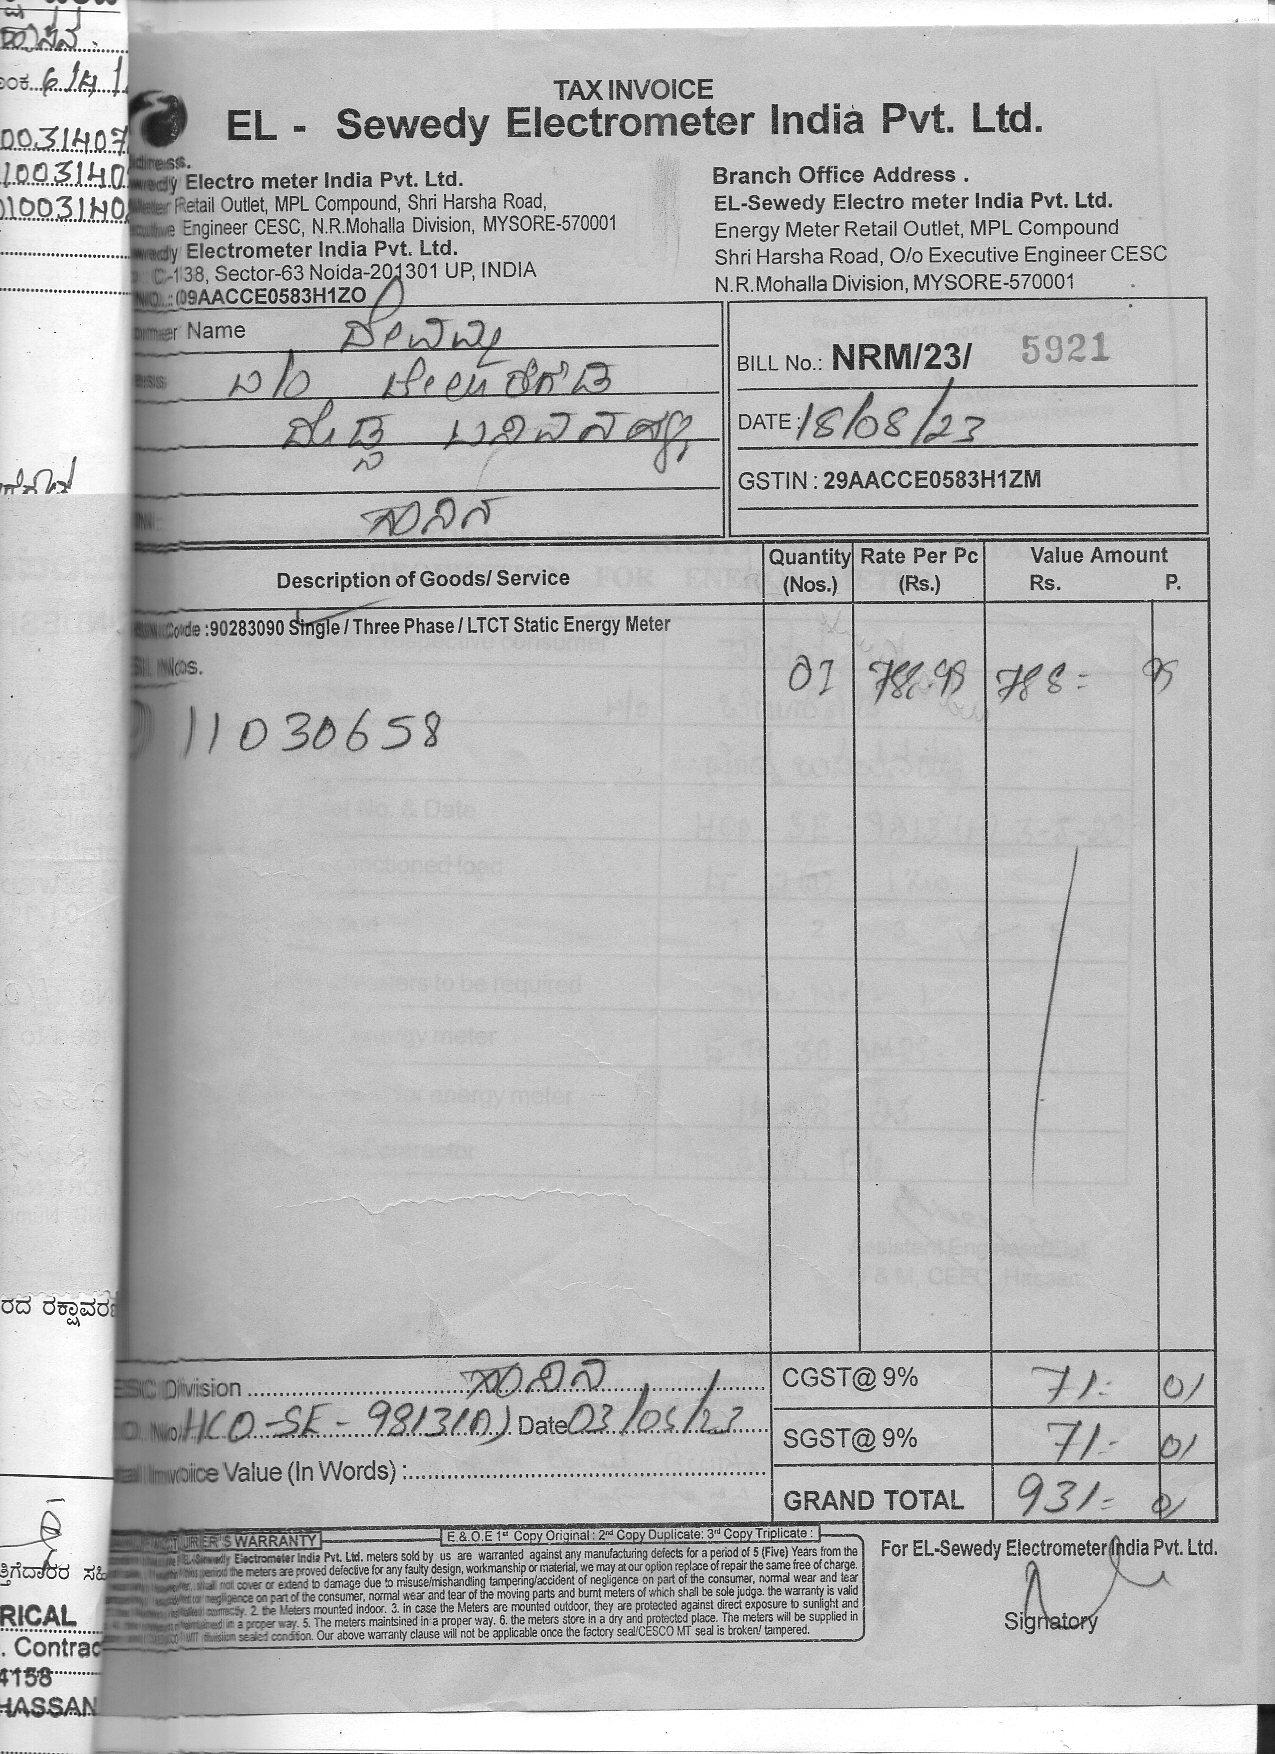 0031407
TAX INVOICE
EL - Sewedy Electrometer India Pvt. Ltd.
Electro meter India Pvt. Ltd.
Retail Outlet, MPL Compound, Shri Harsha Road,
Engineer CESC, N.R.Mohalla Division, MYSORE-570001
Electrometer India Pvt. Ltd.
C-138, Sector-63 Noida-201301 UP, INDIA
NO. : 09AACCE0583H1ZO
Branch Office Address .
EL-Sewedy Electro meter India Pvt. Ltd.
Energy Meter Retail Outlet, MPL Compound
Shri Harsha Road, O/o Executive Engineer CESC
N.R.Mohalla Division, MYSORE-570001
Name
BILL No.: NRM/23/ 5921
DATE : 18/08/23
GSTIN : 29AACCE0583H1ZM
ಹಾಸನ
Description of Goods/ Service
Quantity (Nos.)
Rate Per Pc (Rs.)
Value Amount
Rs. P.
Code :90283090 Single / Three Phase / LTCT Static Energy Meter
Sl. Nos.
01 788.98 788 = 98
11030658
Division ಹಾಸನ
No. HCO-SE-9813(A) Date 03/05/23
Invoice Value (In Words) :
CGST@ 9% 71 - 01
SGST@ 9% 71 - 01
GRAND TOTAL 931 = 01
WARRANTY
E & O.E 1st Copy Original : 2nd Copy Duplicate: 3rd Copy Triplicate :
Electrometer India Pvt. Ltd. meters sold by us are warranted against any manufacturing defects for a period of 5 (Five) Years from the
period the meters are proved defective for any faulty design, workmanship or material, we may at our option replace of repair the same free of charge.
shall not cover or extend to damage due to misuse/mishandling tampering/accident of negligence on part of the consumer, normal wear and tear
negligence on part of the consumer, normal wear and tear of the moving parts and burnt meters of which shall be sole judga. the warranty is valid
correctly. 2. the Meters mounted indoor. 3. in case the Meters are mounted outdoor, they are protected against direct exposure to sunlight and
in a proper way. 5. The meters maintsined in a proper way. 6. the meters store in a dry and protected place. The meters will be supplied in
sealed condition. Our above warranty clause will not be applicable once the factory seal/CESCO MT seal is broken/ tampered.
For EL-Sewedy Electrometer India Pvt. Ltd.
Signatory
ರದ ರಕ್ಷಾವರ
RICAL
. Contrac
4158
HASSAN